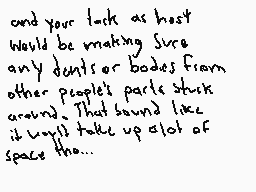 and your task as host
would be making sure
any dents or bodies from
other people's parts stuck
around. That sound like
it would take up alot of
space tho...